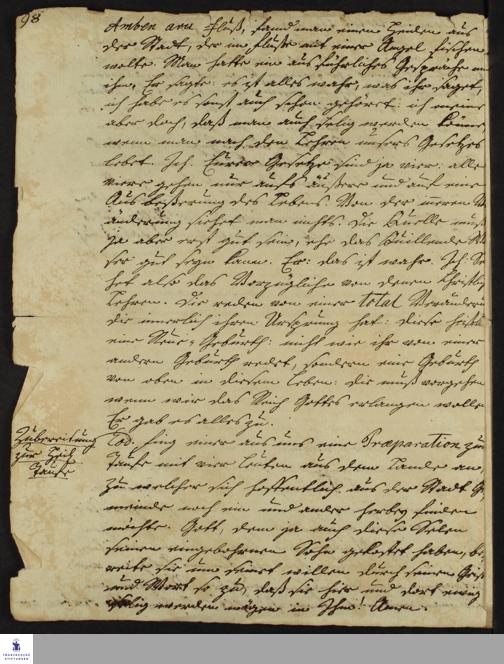 98
Amben am Fluß, fand man einen Heiden aus
der Stadt, der im fluße mit einer Angel fischen
wolte. Man hatte ein ausführliches Gespräche mit
ihm, Er sagte: es ist alles wahr, was ihr saget,
ich habe es sonst auch schon gehöret: ich meine
aber doch, daß man auch selig werden könne,
wenn man nach den Lehren unsers Gesetzes
lebet. Ich: Eurer Gesetze sind ja vier: alle
viere gehen nur aufs äußere und auf eine
Ausbeßerung des Lebens. Von der innern
änderung siehet man nichts. Die Quelle muß
ja aber erst gut sein, ehe das Quellende
ser gut seyn kann. Er: das ist wahr. Ich:
het also das Vorzügliche von denen Christlichen
Lehren. Die reden von einer total Veränderung
die innerlich ihren Ursprung hat: diese heißt
eine Neue-Geburth: nicht wie ihr von einer
andern Geburth redet, sondern eine Geburth
von oben in diesem Leben: die muß vorgehen
wenn wir das Reich Gottes erlangen wollen
Er gab es alles zu.
Zubereitung
zur Heil
Taufe
Eod. fing einer aus uns eine Præparation zur
Taufe mit vier Leuten aus dem Lande an,
zu welcher sich hoffentlich aus der Stadt Ge
meinde noch ein und ander herbey finden
möchte. Gott, dem ja auch diese Selen
seinen eingebohrnen Sohn gekostet haben, be
reite sie um seinet willen durch seinen Geist
und Wort so zu, daß sie hier und dort ewig
selig werden mögen in Ihm! Amen.
FRANCKESCHE
STIFTUNGEN